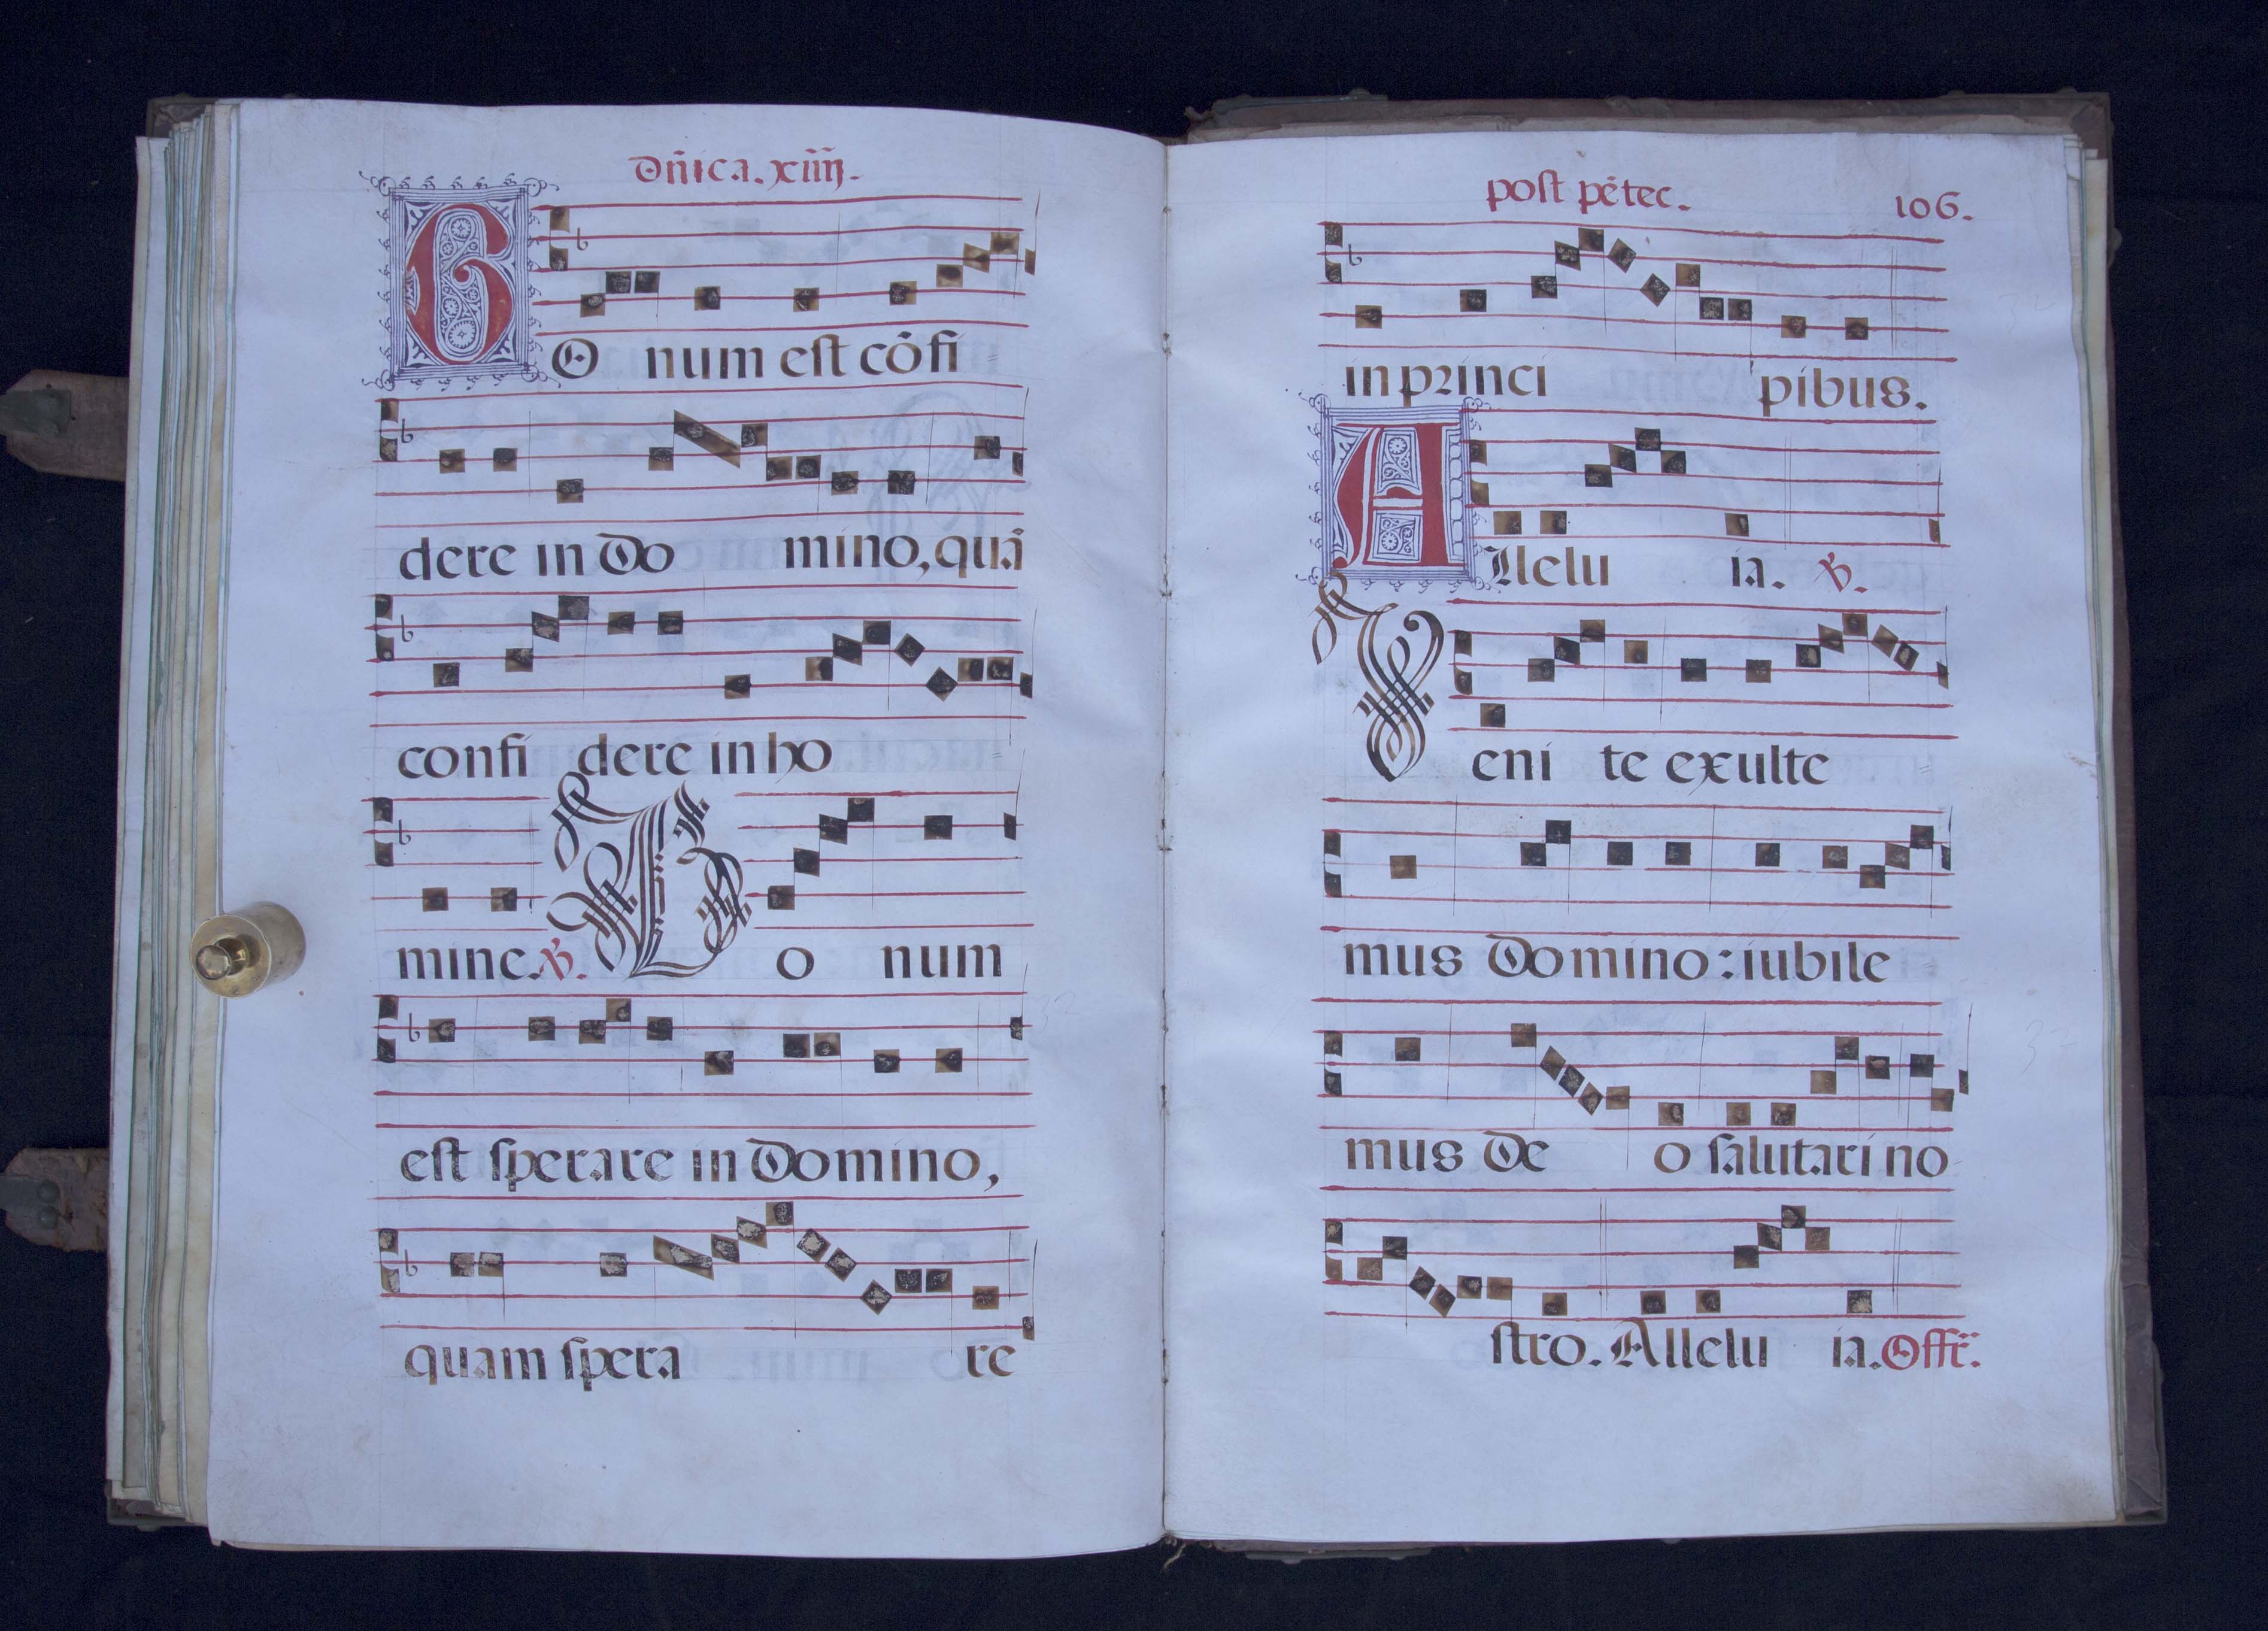 Dñica. xiiij.
BO num est cõfi
dere in Do mino, quã
confi dere in ho
mine. ℣. Bo num
est sperare in Domino,
quam spera re
post pẽtec. 106.
in princi pibus.
Allelu ia. ℣.
Veni te exulte
mus Domino: iubile
mus De o salutari no
stro. Allelu ia. Offr̃.